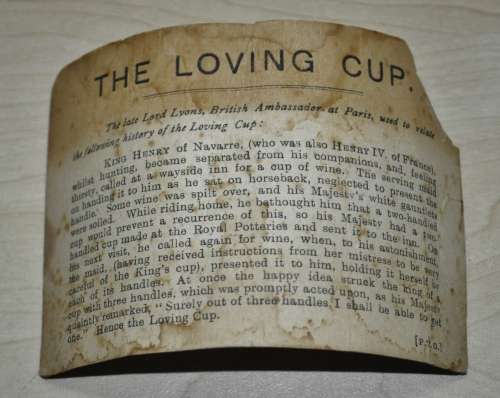 THE LOVING CUP.
The late Lord Lyons, British Ambassador at Paris, used to relate
the following history of the Loving Cup:
KING HENRY of Navarre, (who was also HENRY IV. of France),
whilst hunting, became separated from his companions, and, feeling
thirsty, called at a wayside inn for a cup of wine. The serving maid
on handing it to him as he sat on horseback, neglected to present the
handle. Some wine was spilt over, and his Majesty's white gauntlets
were soiled. While riding home, he bethought him that a two-handled
cup would prevent a recurrence of this, so his Majesty had a two-
handled cup made at the Royal Potteries and sent it to the inn. On
his next visit, he called again for wine, when, to his astonishment,
the maid, (having received instructions from her mistress to be very
careful of the King's cup), presented it to him, holding it herself by
each of its handles. At once the happy idea struck the King of a
cup with three handles, which was promptly acted upon, as his Majesty
quaintly remarked, "Surely out of three handles I shall be able to get
one." Hence the Loving Cup.
[P.T.O.]